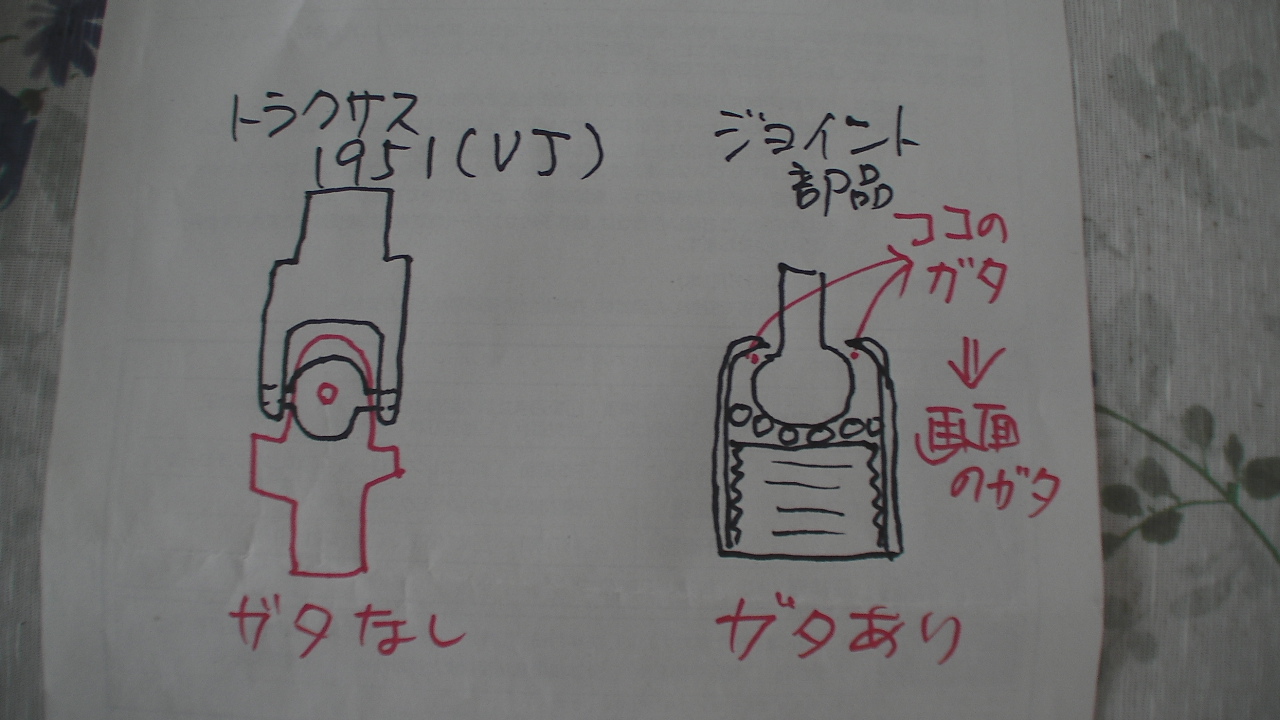 トラクサス
1951(VJ)
ジョイント
部品
ココの
ガタ
⇓
画面
のガタ
ガタなし
ガタあり